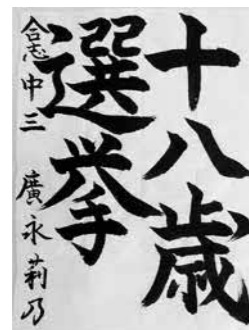 十八歳
選挙
合志中三 廣永莉乃